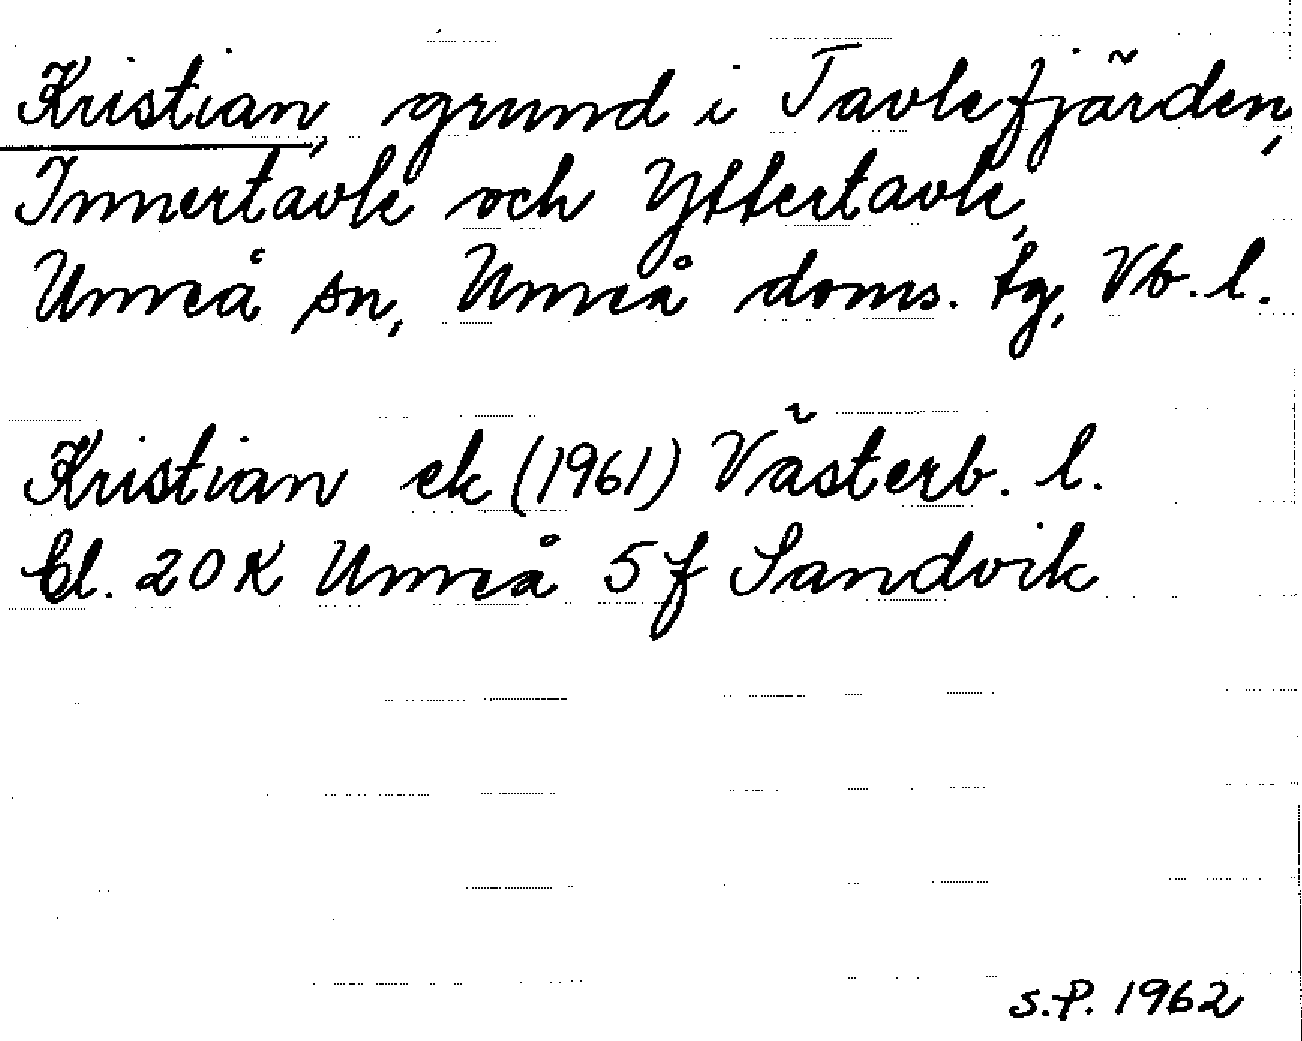 Kristian, grund i Tavlefjärden,
Innertavle och Yttertavle,
Umeå sn, Umeå doms. tg, Vb. l.
Kristian ek (1961) Västerb. l.
bl. 20 K Umeå 5 f Sandvik
S.P. 1962